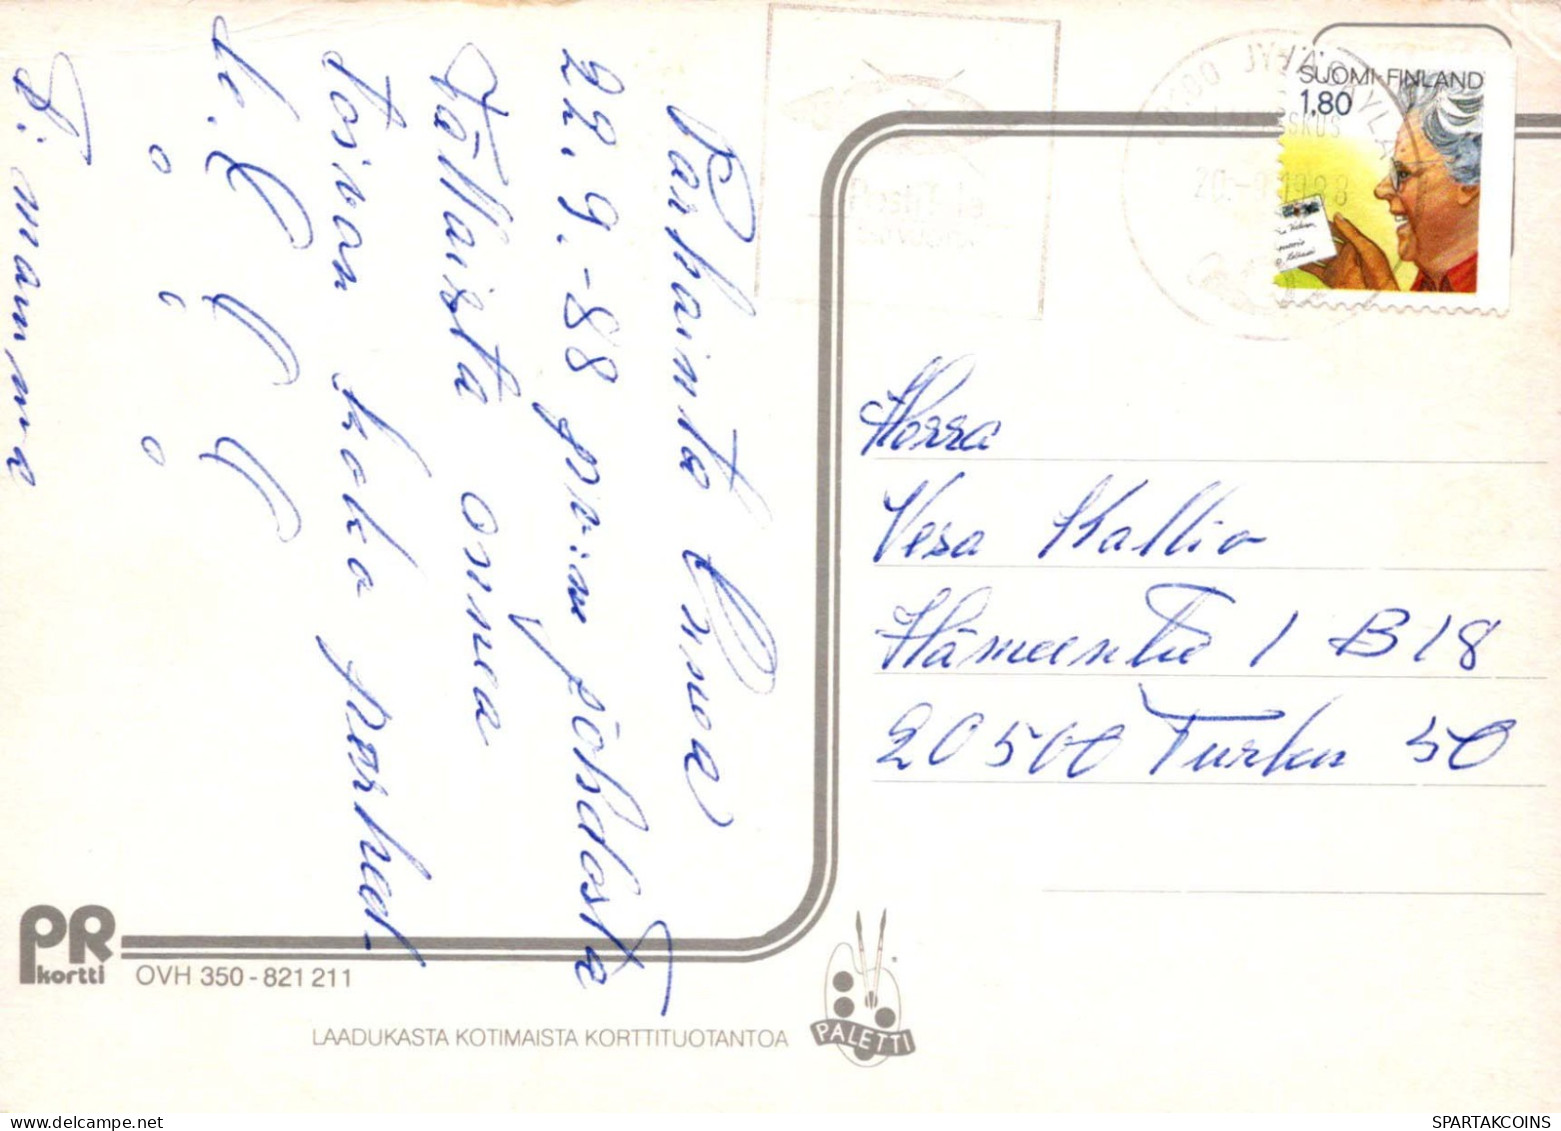 Parhainta Onnea
22.9.-88 pv:n johdosta
Tällaista onnea
toivon koko perheel-
le. !!!
T: mamma
SUOMI-FINLAND
1,80
20.-9.1988
Herra
Vesa Kallio
Hämeentie 1 B 18
20500 Turku 50
PR
kortti
OVH 350-821 211
LAADUKASTA KOTIMAISTA KORTTITUOTANTOA
PALETTI
SPARTAKCOINS